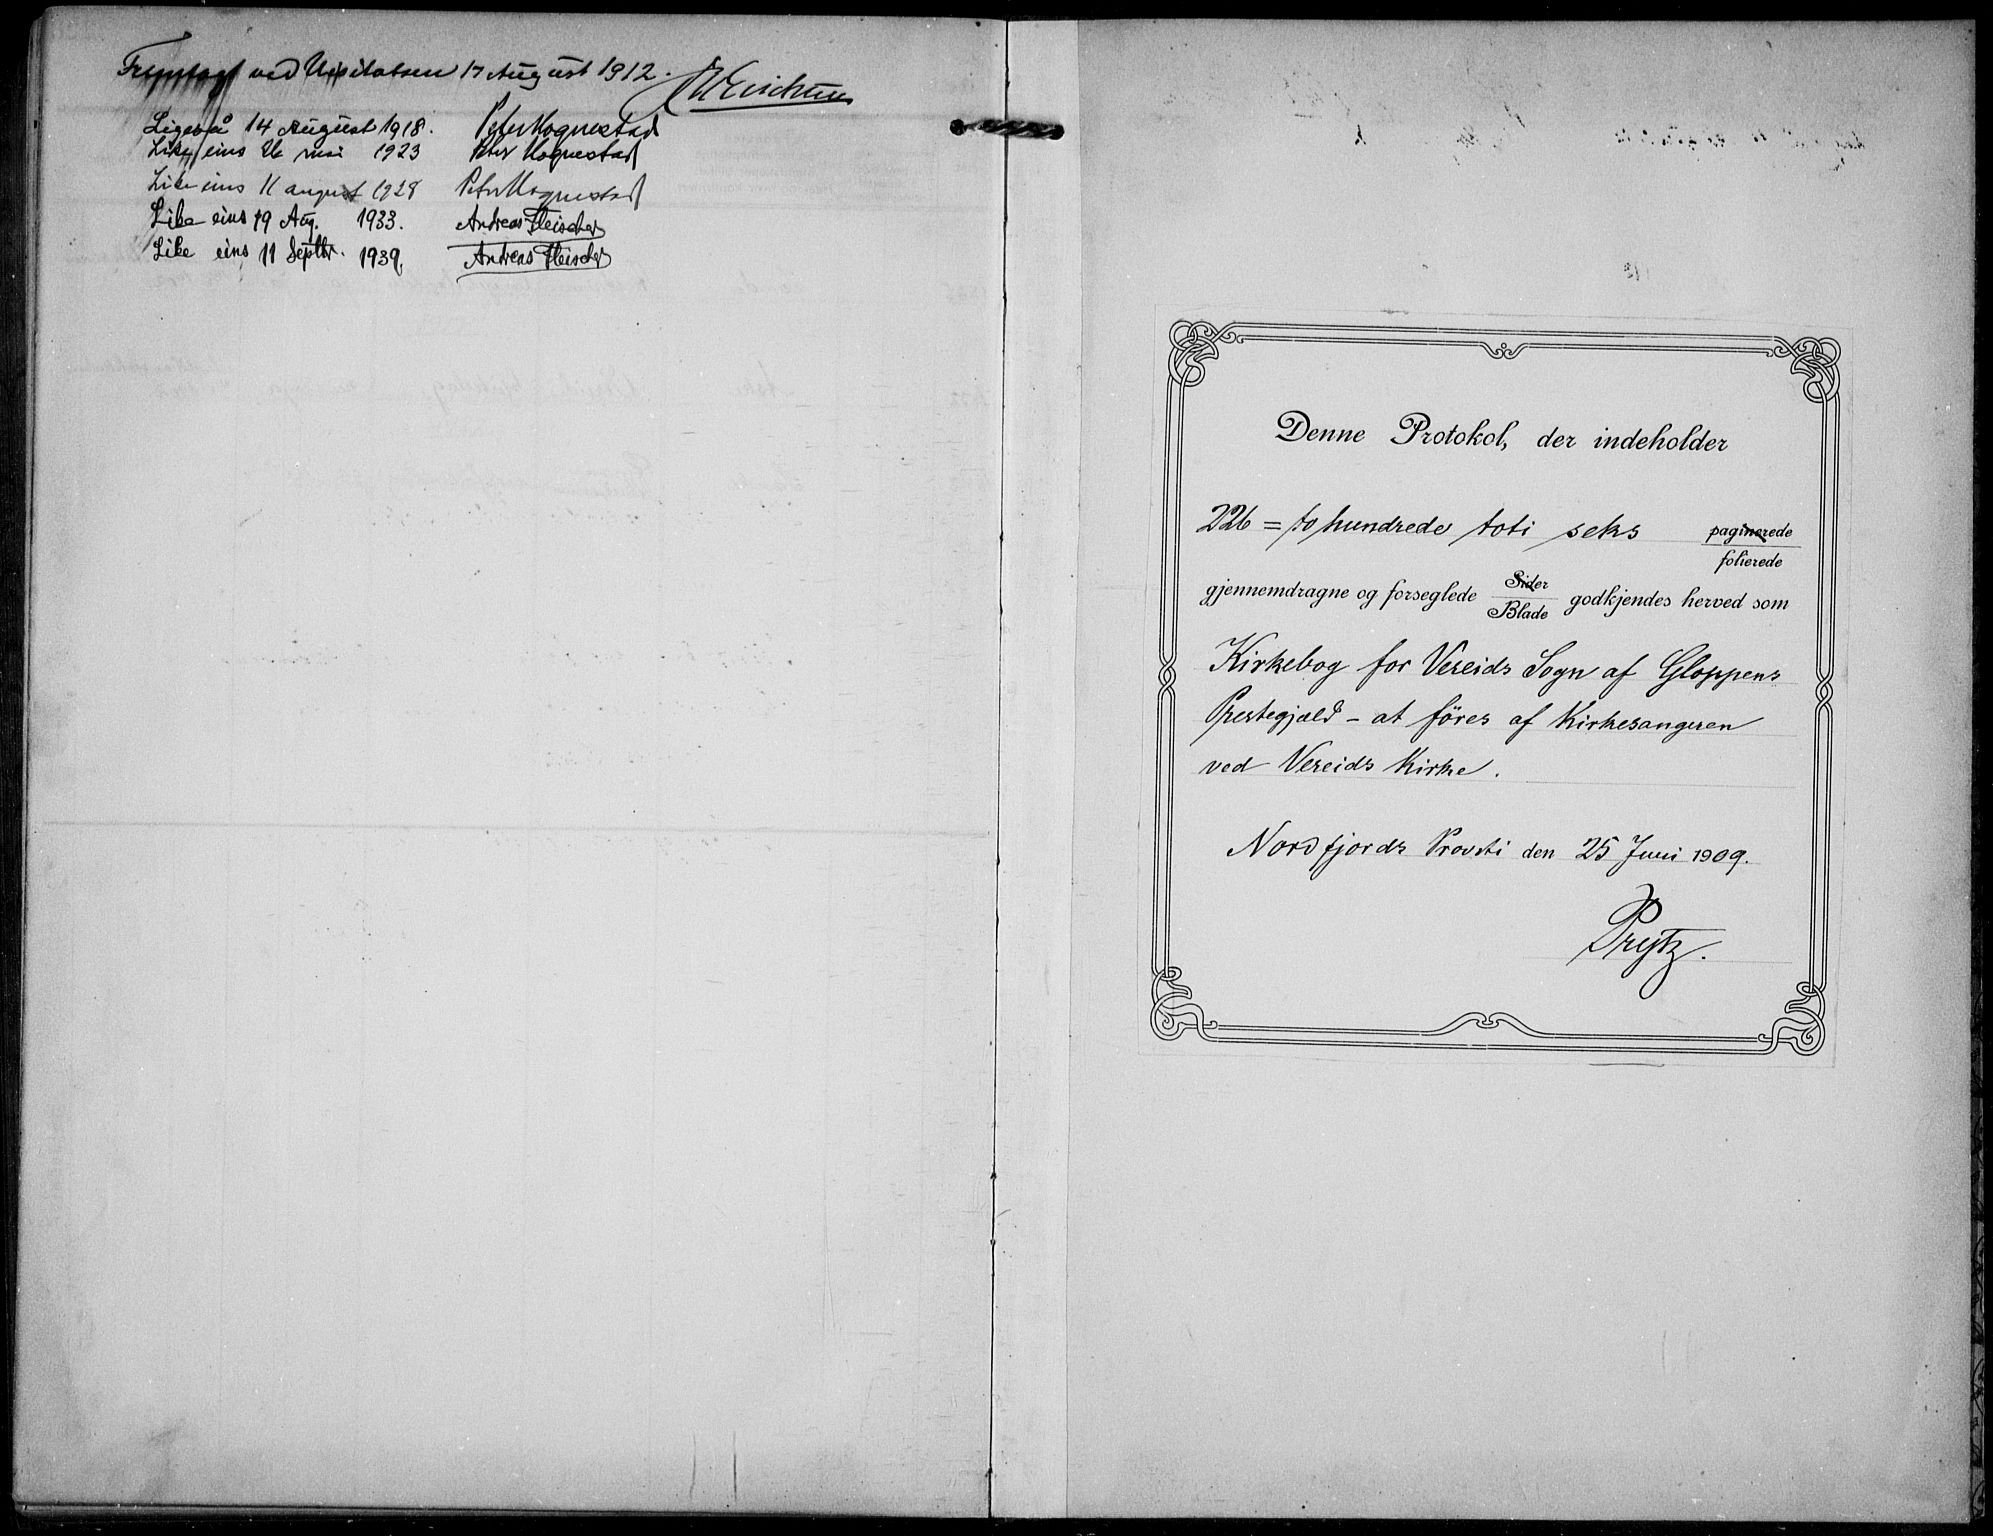 Fremlagt ved Visitatsen 17 August 1912.
Ligeså 14 August 1918. Peter Hognestad
Like eins 26 mai 1923 Peter Hognestad
Like eins 11 august 1928 Peter Hognestad
Like eins 19 Aug. 1933. Andreas Fleischer
Like eins 11 Septbr. 1939. Andreas Fleischer
Denne Protokol, der indeholder
226 = to hundrede toti seks paginerede
folierede
gjennemdragne og forseglede Sider
Blade godkjendes herved som
Kirkebog for Vereids Sogn af Gloppens
Prestegjæld – at föres af Kirkesangeren
ved Vereids Kirke.
Nordfjords Provsti den 25 Juni 1909.
Prytz.